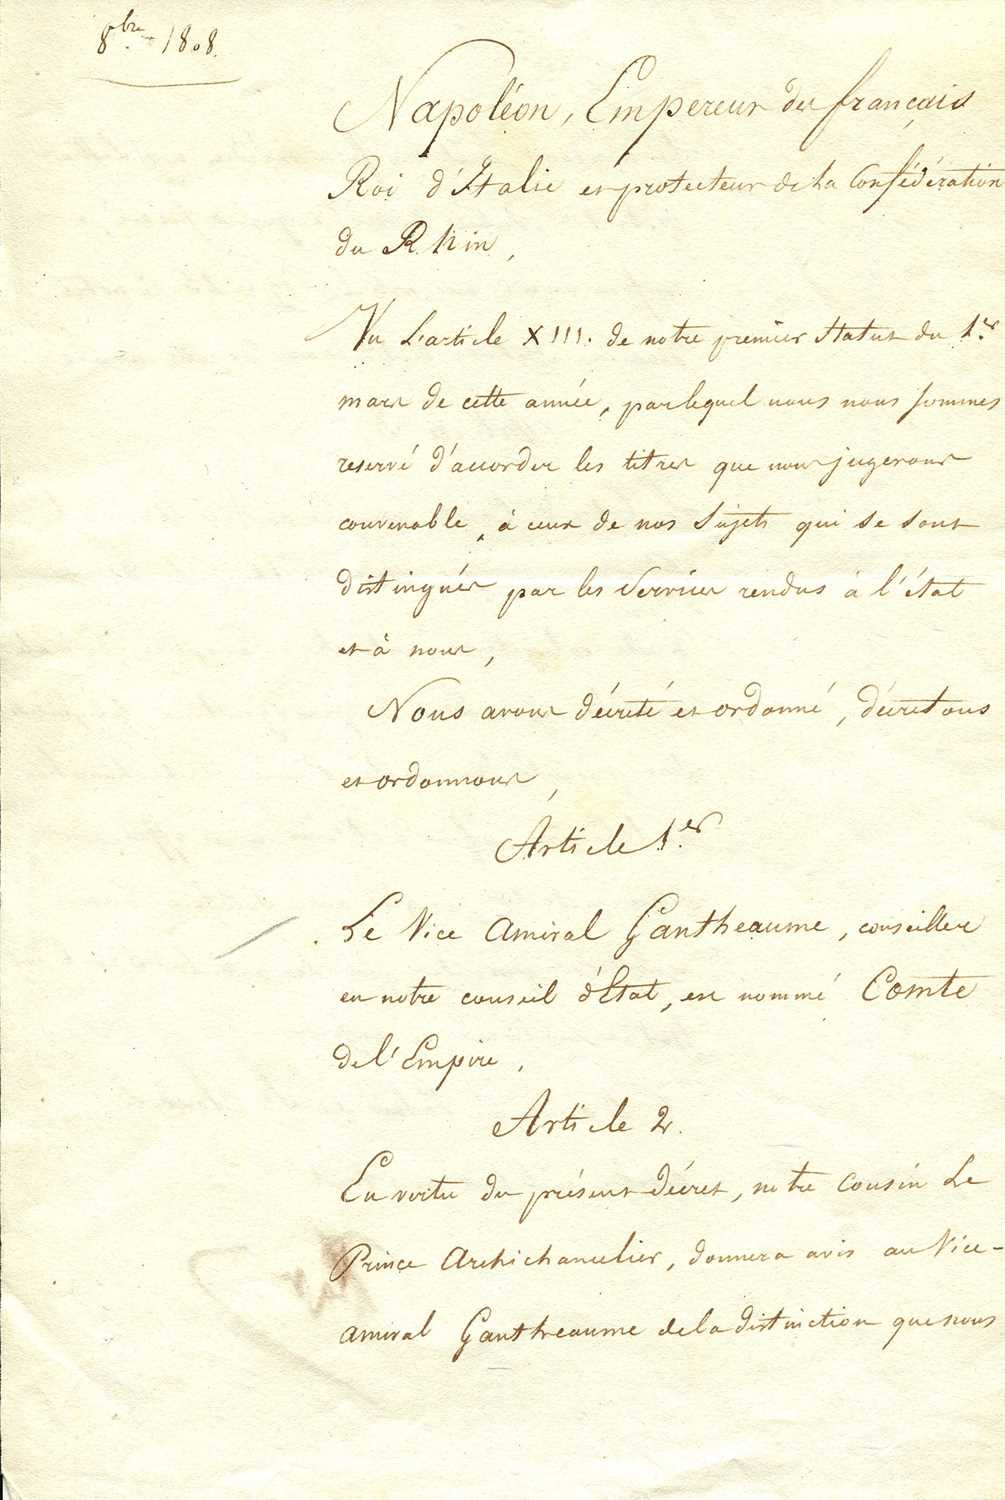 8bre 1808.
Napoléon, Empereur des français
Roi d'Italie et protecteur de la Confédération
du Rhin,
Vu L'article XIII. de notre premier Statut du 1.er
mars de cette année, par lequel nous nous sommes
reservé d'accorder les titres que nous jugerons
convenable, à ceux de nos Sujets qui se sont
distingués par les Services rendus à l'état
et à nous,
Nous avons décrété et ordonné, décretons
et ordonnons,
Article 1.er
Le Vice Amiral Gantheaume, conseiller
en notre conseil d'Etat, est nommé Comte
de l'Empire.
Article 2.
En vertu du présent décret, notre Cousin Le
Prince Archichancelier, donnera avis au Vice-
amiral Gantheaume de la distinction que nous